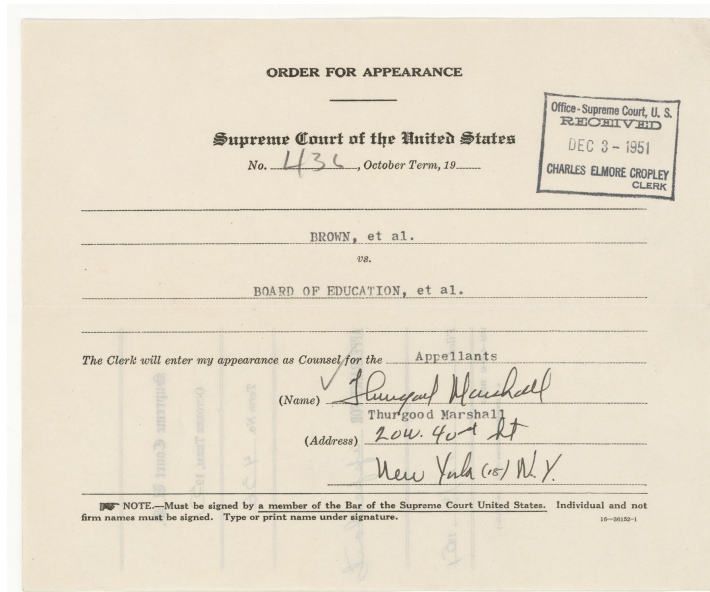 ORDER FOR APPEARANCE
Supreme Court of the United States
No. 436, October Term, 19
Office - Supreme Court, U. S.
RECEIVED
DEC 3 - 1951
CHARLES ELMORE CROPLEY
CLERK
BROWN, et al.
vs.
BOARD OF EDUCATION, et al.
The Clerk will enter my appearance as Counsel for the Appellants
(Name) Thurgood Marshall
Thurgood Marshall
(Address) 20 W. 40th St
New York (18) N.Y.
NOTE.—Must be signed by a member of the Bar of the Supreme Court United States. Individual and not
firm names must be signed. Type or print name under signature.
16—36152-1